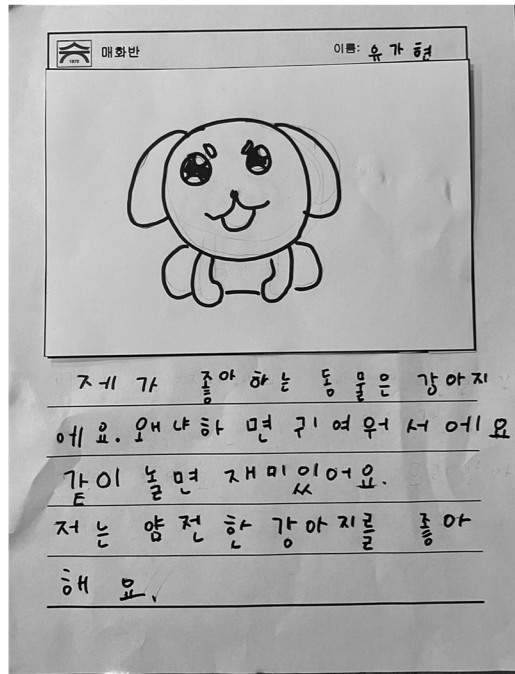 1970
매화반
이름: 유가현
제가 좋아하는 동물은 강아지
에요. 왜냐하면 귀여워서에요
같이 놀면 재미있어요.
저는 얌전한 강아지를 좋아
해요.